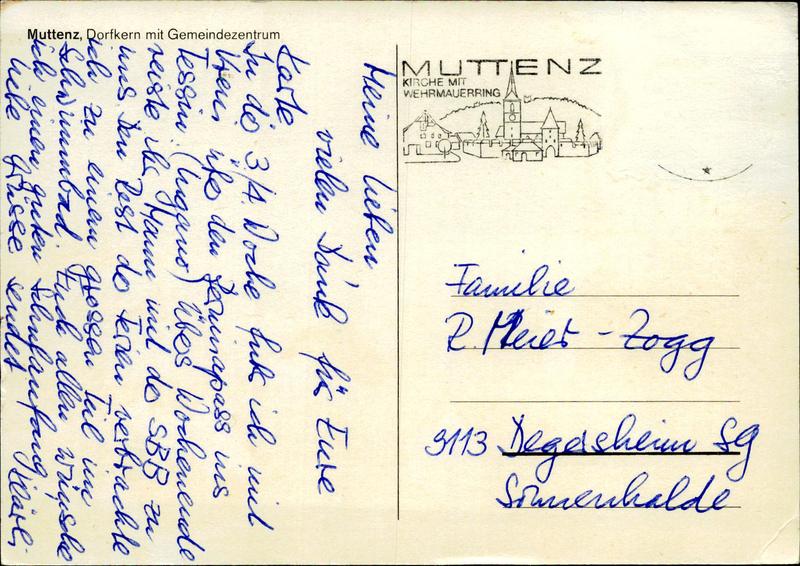 Muttenz, Dorfkern mit Gemeindezentrum
Meine lieben
vielen Dank für Eure
Karte
In der 3/4. Woche fuhr ich mit
Vreni über den Berninapass ins
Tessin (Lugano) Übers Wochenende
reiste ihr Mann mit der SBB zu
uns. Den Rest der Ferien verbrachte
ich zu einem grossen Teil im
Schwimmbad. Euch allen wünsche
ich einen guten Schulanfang
liebe Grüsse sendet
MUTTENZ
KIRCHE MIT
WEHRMAUERRING
Familie
R. Meier-Zogg
9113 Degersheim SG
Sonnenhalde